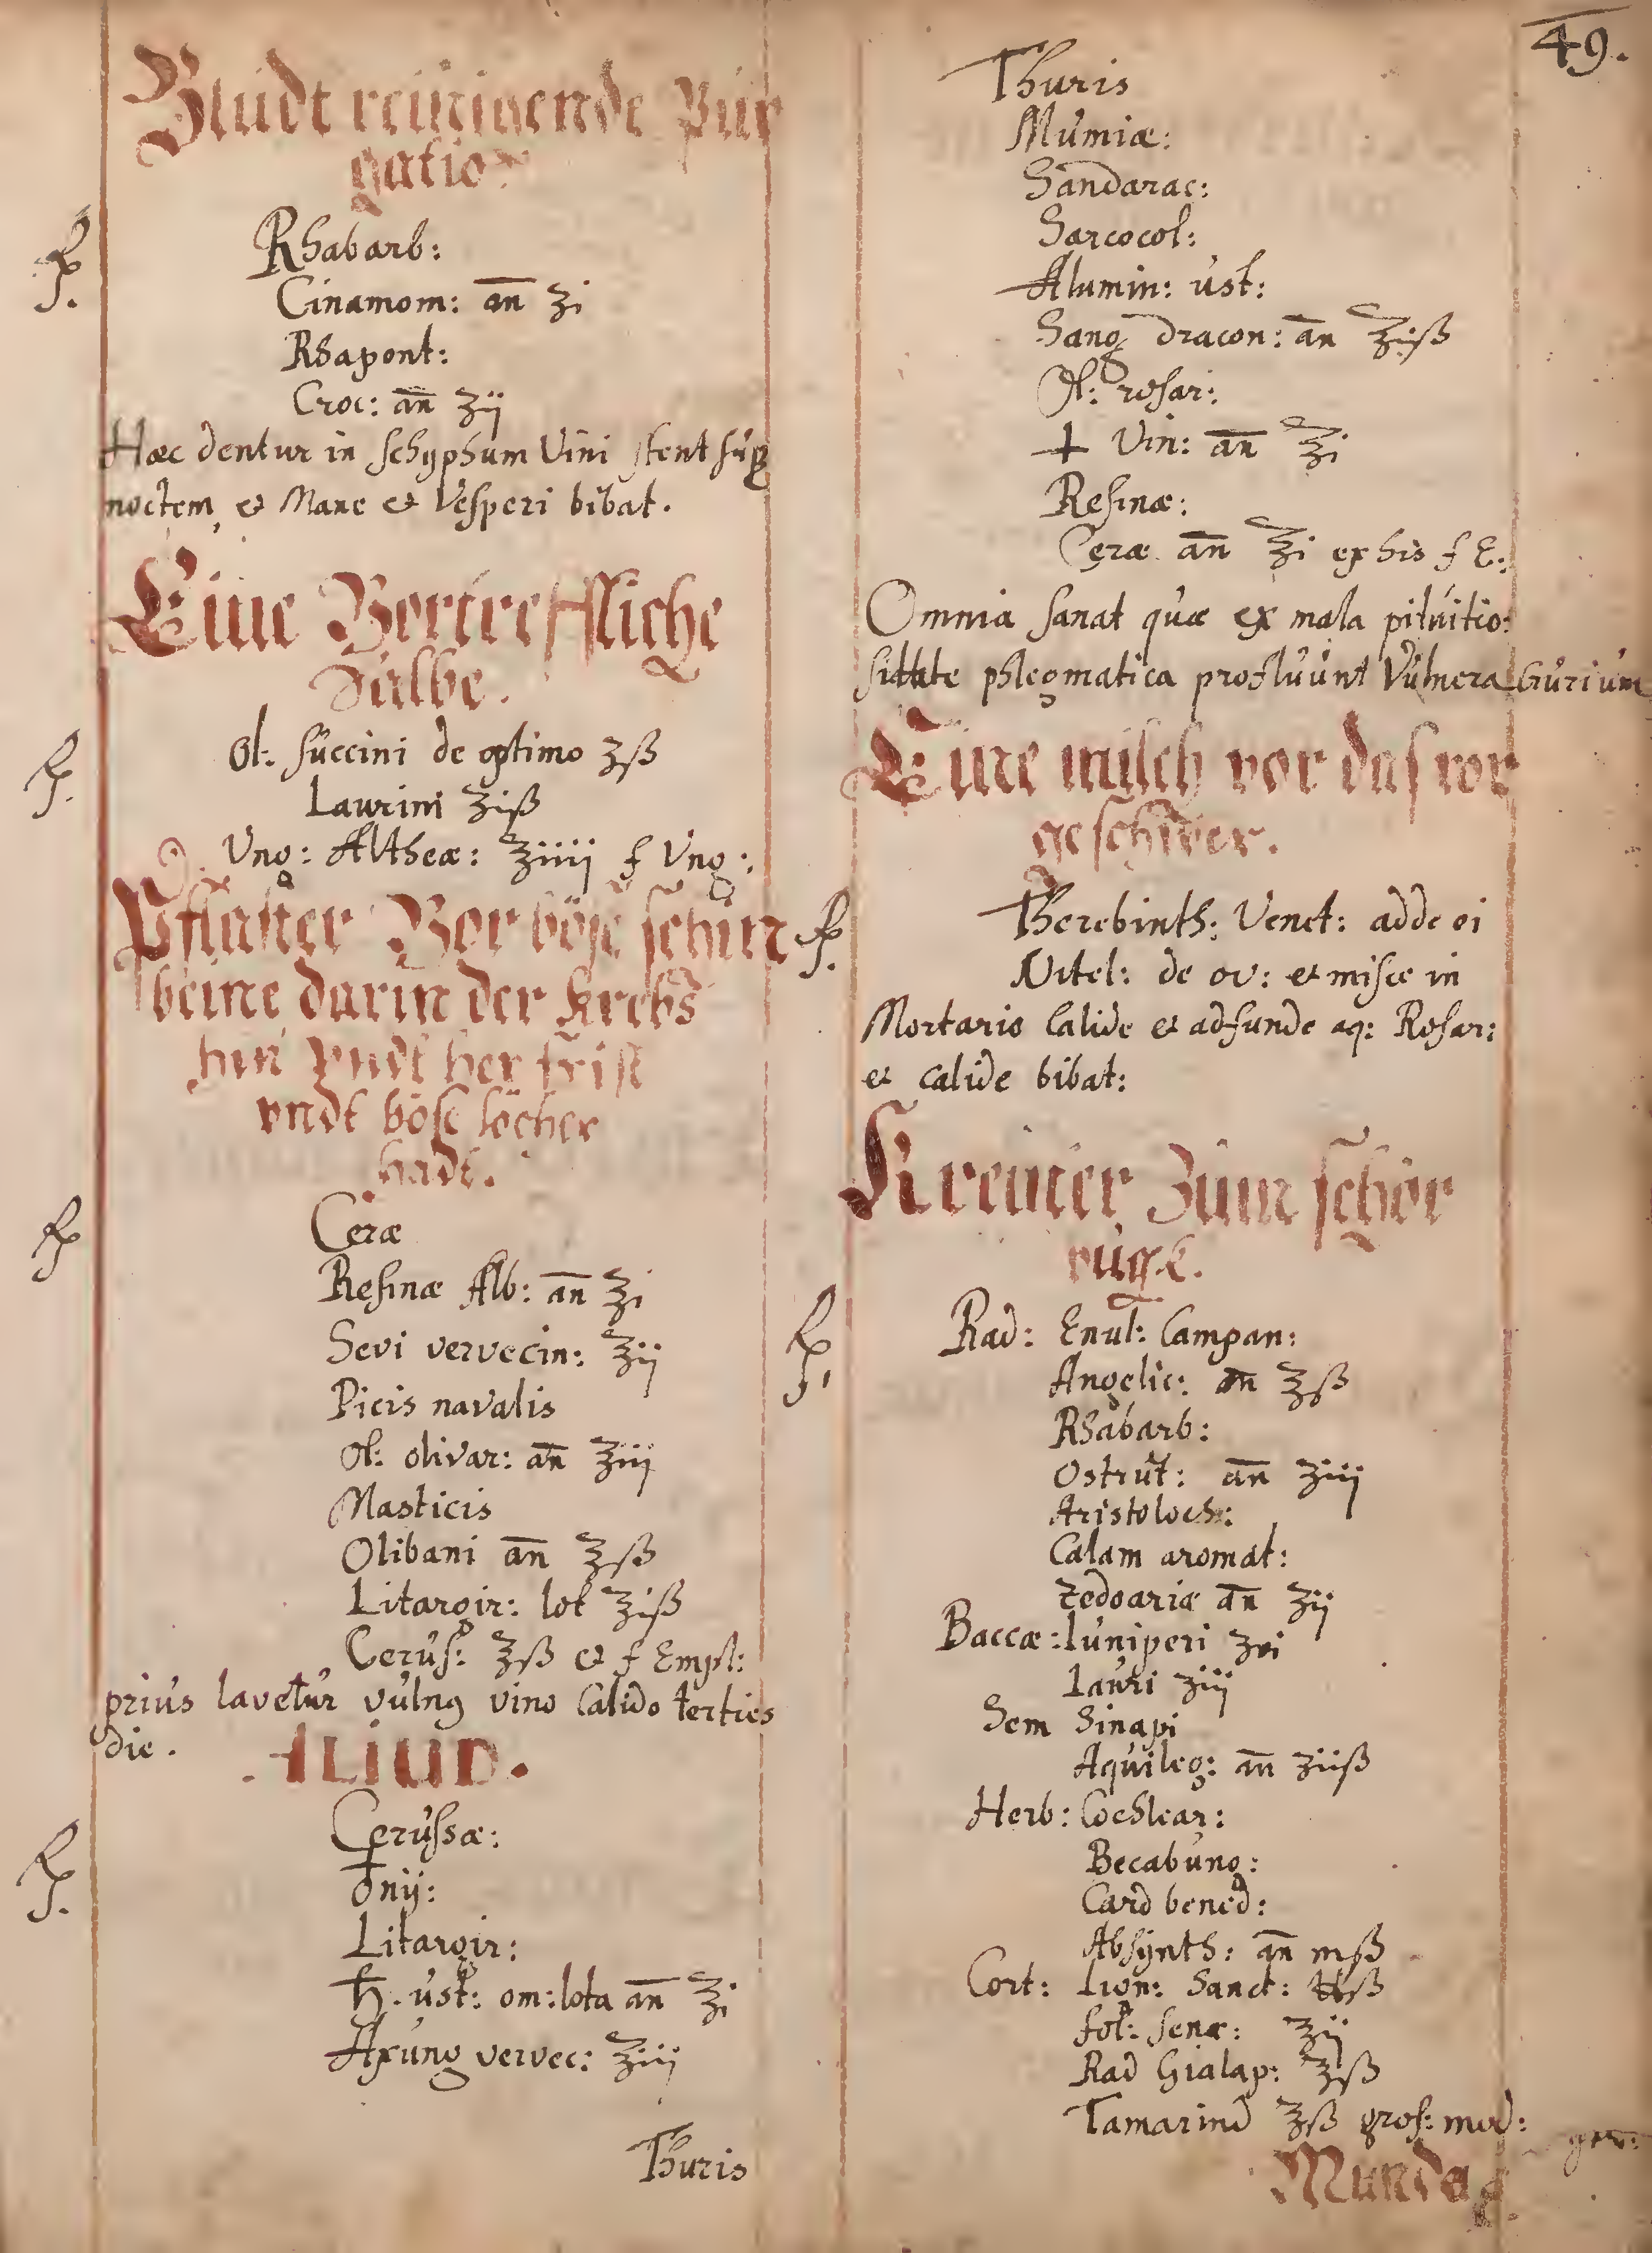 Bludt reinigende Pur
gation
Rp. Rhabarb:
Cinamom: an ʒi
Rhapont:
Croc: an ʒij
Hæc dentur in schyphum Vini stent sup
noctem, et Mane et Vesperi bibat.
Eine Vortreffliche
Salbe.
Rp. Ol: succini de optimo ʒß
Laurini ʒiß
Ung: Altheæ: ℥iiij f Ung:
Pflaster Vor böse schin
beine darin der Krebs
hin undt her frist
undt böse löcher
hadt.
Rp Ceræ
Resinæ Alb: an ℥i
Sevi vervecin: ℥ij
Picis navalis
Ol: olivar: an ℥iij
Masticis
Olibani an ℥ß
Litargir: lot ℥iß
Cerus: ℥ß et f Empl:
prius lavetur vulnq vino Calido terties
die.
ALIUD.
Rp. Cerussæ:
Litargir:
♄. ust: om: lota an ℥i
Axung vervec: ℥iij
Thuris
49.
Thuris
Mumiæ:
Sandarac:
Sarcocol:
Alumin: ust:
Sang dracon: an ℥ijß
Ol: rosar:
+ Vin: an ℥i
Resinæ:
Ceræ an ℥i ex his f E:
Omnia sanat quæ ex mala pituitio:
sitate phlegmatica profluunt Vulnera
Eine misch vor das vor
geschwer.
Rp. Therebinth: Venet: adde ei
Vitel: de ov: et misce in
Mortario Calide et adfunde aq: Rosar:
et calide bibat:
Kreuter Zum schor
bugk.
Rp. Rad: Enul: Campan:
Angelic: an ℥ß
Rhabarb:
Ostrut: an ʒiij
Aristoloch:
Calam aromat:
Zedoariæ an ʒij
Baccæ: Iuniperi ʒvi
Lauri ʒiij
Sem Sinapi
Aquileg: an ʒijß
Herb: Cochlear:
Becabung:
Card bened:
Absynth: an mß
Cort: Lign: Sanct: ℔ß
fol: senæ: ℥ij
Rad Gialap: ℥ß
Tamarind ℥ß gros: mod: